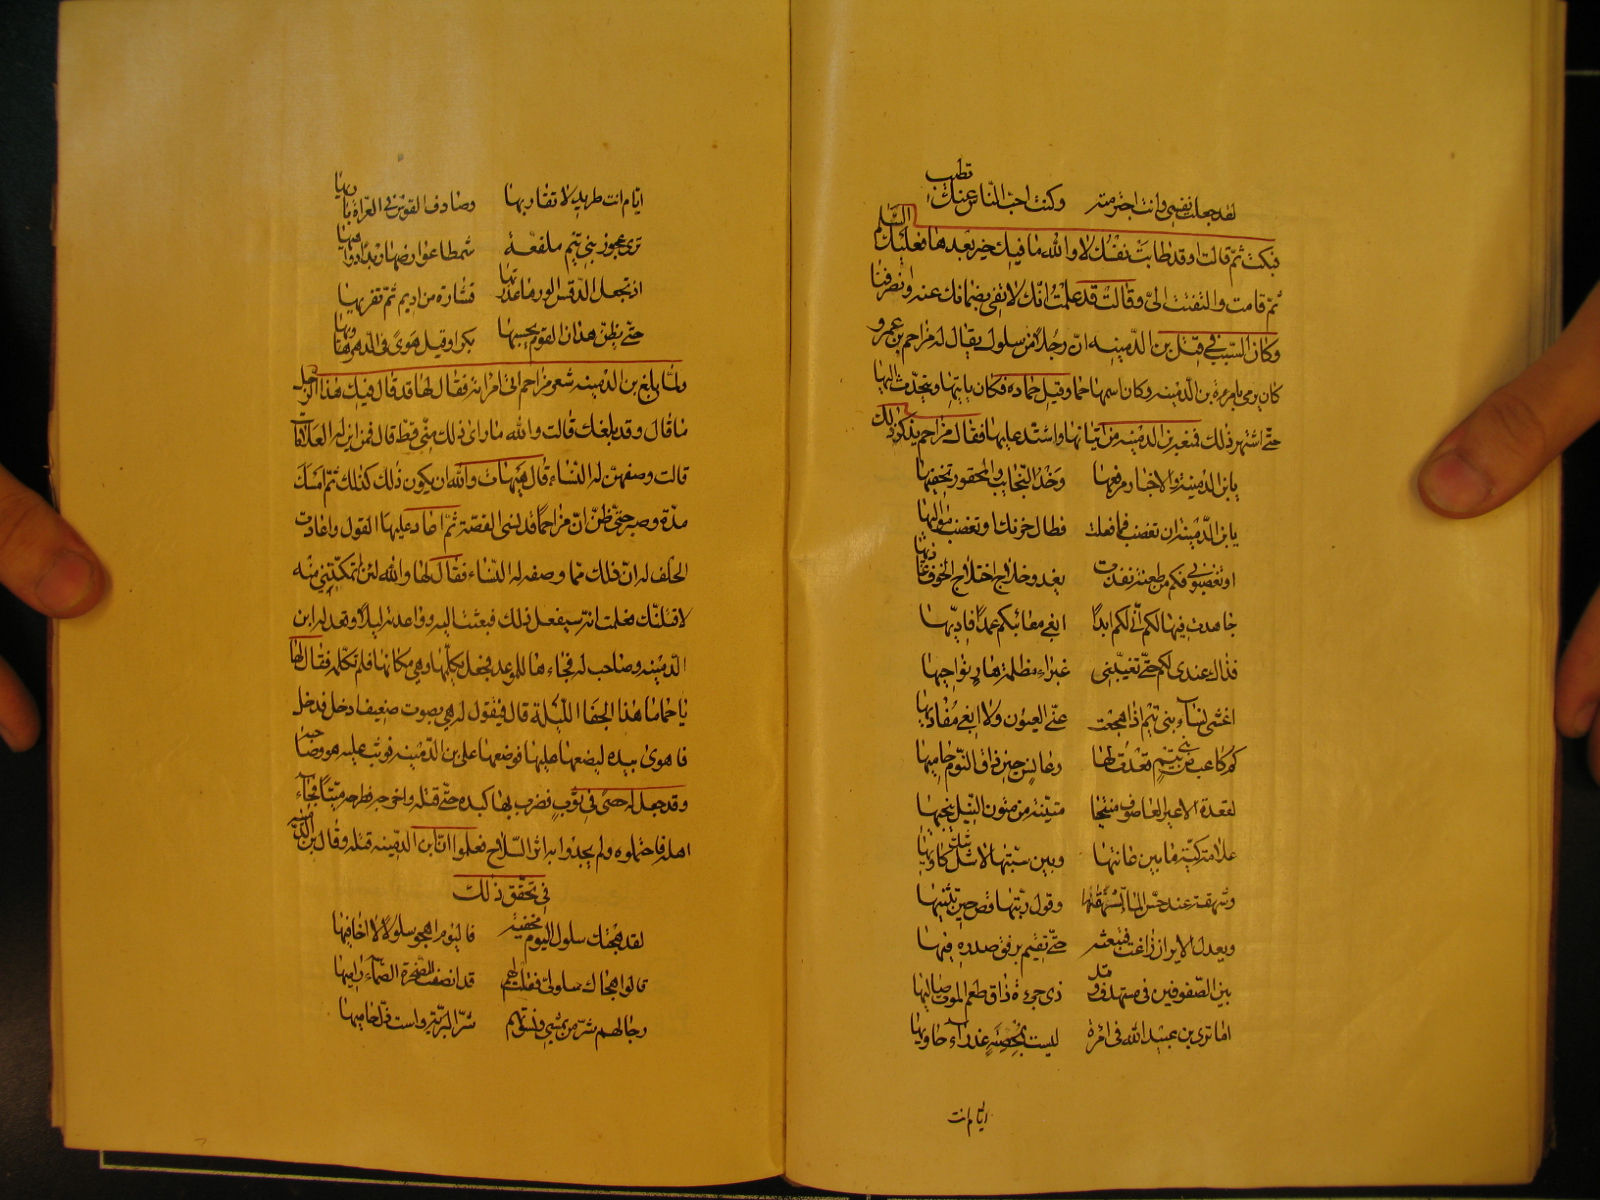 لقد جعلت نفسي وانت اخترمته وكنت احب الناس عنك تطيب
فبكت ثم قالت اوقد طابت نفسك لا والله ما فيك خير بعدها فعليك السلم
ثم قامت والتفتت الىّ وقالت قد علمت انك لا تفى بضمانك عنه وانصرفنا
وكان السبب في قتل بن الدمينه ان رجلا من سلول يقال له مزاحم بن عمرو
كان يرمى بامرءة بن الدمينه وكان اسمها حما وقيل حماده فكان ياتيها ويتحدث اليها
حتى اشتهر ذلك فمنعه بن الدمينه من اتيانها واشتد عليها فقال مزاحم يذكر ذلك
يابن الدمينة والاخبار يرفعها وخد النجايب والمحقور يخفيها
يابن الدمينة ان تغضب لما فعلت فطال خزيك او تغضب مواليها
او تغضبوا فكم من طعنة نفذت يغدو خلال اختلاج الجوف غاذيها
جاهدت فيها لكم انى لكم ابدا ابغى معائبكم عمدا فاتيها
فذاك عندى لكم حتى تغيبنى غبراء مظلمة هار نواحيها
اغشى نساء بنى تيم اذا هجعت عنى العيون ولا ابغى مقاريها
كم كاعب من بنى تيم قعدت لها وعانس حين ذاق النوم حاميها
كقعدة الاعسر العلفوف منتحيا متينة من متون النبل ينحيها
علامة كية ما بين عانتها وبين سبتها لا شل كاويها
وشهقة عند حس الماء تشهقها وقول ركبتها قض حين تثنيها
وتعدل الاير ان زاغت فتبعثه حتى تقيم برفق صدره فيها
بين الصفوفين في مستهدف ومد ذى حرة ذاق طعم الموت صاليها
اما ترى بن عبيد الله في امرة ليست بمحصنة عذراء حاويها
ايام انت
ايام انت طريد لا تقاربها وصادف القوس في الغرات باريها
ترى عجوز بنى تيم ملفعة شمطا عوارضها ربدا دواهيها
اذ تجعل الدفنس الورها عذرتها قشارة من اديم ثم تفريها
حتى يظن هذان القوم يحسبها بكرا وقيل هوى في الدهر هاويها
ولما بلغ بن الدمينه شعر مزاحم اتى امراته فقال لها قد قال فيك هذا الرجل
ما قال وقد بلغك قالت والله ما راى ذلك منى قط قال فمن اين له العلامات
قالت وصفهن له النساء قال هيهات والله ان يكون ذلك كذلك ثم امسك
مدة وصبر حتى ظن ان مزاحما قد نسى القصة ثم اعاد عليها القول واعادت
الحلف له ان ذلك مما وصفه له النساء فقال لها والله لئن لم تمكنيني منه
لاقتلنك فعلمت انه سيفعل ذلك فبعثت اليه وواعدته ليلا وقعد له ابن
الدمينه وصاحب له فجاءها للموعد فجعل يكلمها وهي مكانها فلم تكلمه فقال لها
يا حما ما هذا الجفا الليلة قال فتقول له هي بصوت ضعيف ادخل فدخل
فاهوى بيده ليضعها عليها فوضعها على بن الدمينه فوثب عليه هو وصاحبه
وقد جعل له حصى في ثوب فضرب بها كبده حتى قتله واخرجه فطرحه ميتا فجاء
اهله فاحتملوه ولم يجدوا به اثر السلاح فعلموا ان ابن الدمينه قتله وقال بن الدمينه
في تحقق ذلك
لقد هجتك سلول اليوم مخفية فاليوم اهجو سلولا لا اخافيها
قالوا هجاك سلولى فقلت لهم قد انصف الصخرة الصماء راميها
رجالهم شر من يمشي ونستوتهم شر البرية واست ذل حاميها